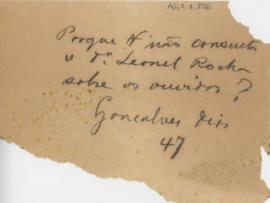 AG.1.1.856
Porque não consulta
o dr. Leonel Rocha
sobre os ouvidos?
Gonçalves Dias
47